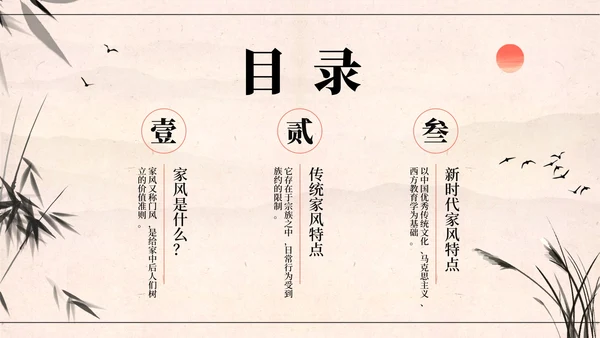 目 录
壹
家风是什么？
家风又称门风，是给家中后人们树
立的价值准则。
贰
传统家风特点
它存在于宗族之中，日常行为受到
族约的限制。
叁
新时代家风特点
以中国优秀传统文化、马克思主义、
西方教育学为基础。